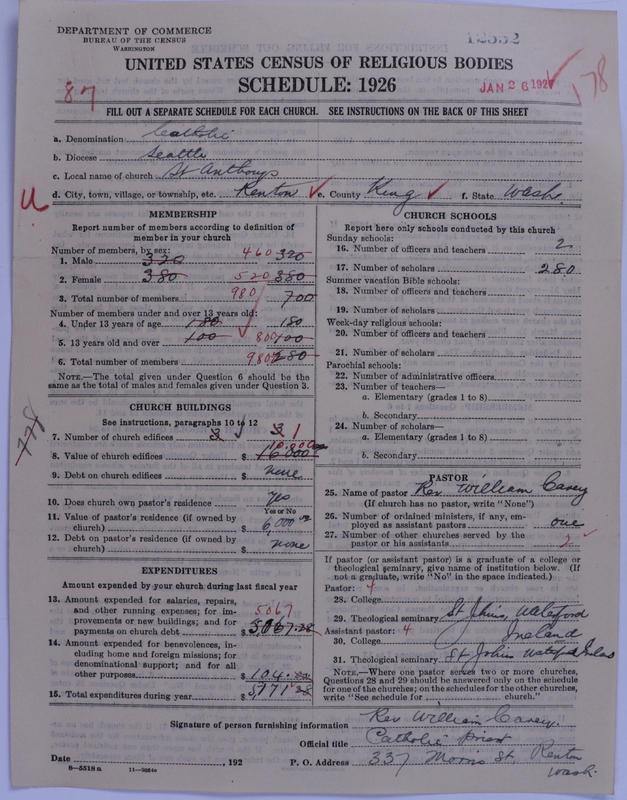 DEPARTMENT OF COMMERCE
BUREAU OF THE CENSUS
WASHINGTON
UNITED STATES CENSUS OF RELIGIOUS BODIES
SCHEDULE: 1926
87
JAN 26 1927
178
FILL OUT A SEPARATE SCHEDULE FOR EACH CHURCH. SEE INSTRUCTIONS ON THE BACK OF THIS SHEET
a. Denomination Catholic
b. Diocese Seattle
c. Local name of church St Anthonys
d. City, town, village, or township, etc. Renton e. County King f. State Wash.
u
MEMBERSHIP
Report number of members according to definition of
member in your church
Number of members, by sex:
1. Male 320 460 320
2. Female 380 520 380
3. Total number of members 980 700
Number of members under and over 13 years old:
4. Under 13 years of age 180 180
5. 13 years old and over 100 800 100
6. Total number of members 980 280
NOTE.—The total given under Question 6 should be the
same as the total of males and females given under Question 3.
CHURCH BUILDINGS
See instructions, paragraphs 10 to 12
7. Number of church edifices 3 3 1
10.000
8. Value of church edifices $ 16000
9. Debt on church edifices $ none
10. Does church own pastor's residence yes
Yes or No
11. Value of pastor's residence (if owned by
church) $ 6000
12. Debt on pastor's residence (if owned by
church) $ none
778
EXPENDITURES
Amount expended by your church during last fiscal year
13. Amount expended for salaries, repairs,
and other running expenses; for im-
provements or new buildings; and for
payments on church debt 5067 $ 3067.28
14. Amount expended for benevolences, in-
cluding home and foreign missions; for
denominational support; and for all
other purposes $ 104.
15. Total expenditures during year $ 5171 28
CHURCH SCHOOLS
Report here only schools conducted by this church
Sunday schools:
16. Number of officers and teachers 2
17. Number of scholars 280
Summer vacation Bible schools:
18. Number of officers and teachers
19. Number of scholars
Week-day religious schools:
20. Number of officers and teachers
21. Number of scholars
Parochial schools:
22. Number of administrative officers
23. Number of teachers—
a. Elementary (grades 1 to 8)
b. Secondary
24. Number of scholars—
a. Elementary (grades 1 to 8)
b. Secondary
PASTOR
25. Name of pastor Rev William Carey
(If church has no pastor, write "None")
26. Number of ordained ministers, if any, em-
ployed as assistant pastors one
27. Number of other churches served by the
pastor or his assistants 2
If pastor (or assistant pastor) is a graduate of a college or
theological seminary, give name of institution below. (If
not a graduate, write "No" in the space indicated.)
Pastor: 4
28. College
29. Theological seminary St Johns, Waterford
Assistant pastor: 4 Ireland
30. College
31. Theological seminary St Johns Waterford Ireland
NOTE.—Where one pastor serves two or more churches,
Questions 28 and 29 should be answered only on the schedule
for one of the churches; on the schedules for the other churches,
write "See schedule for church."
Signature of person furnishing information Rev William Carey
Official title Catholic Priest
Date , 192 P. O. Address 337 Morris St, Renton
Wash.
8—5518a 11—9864a